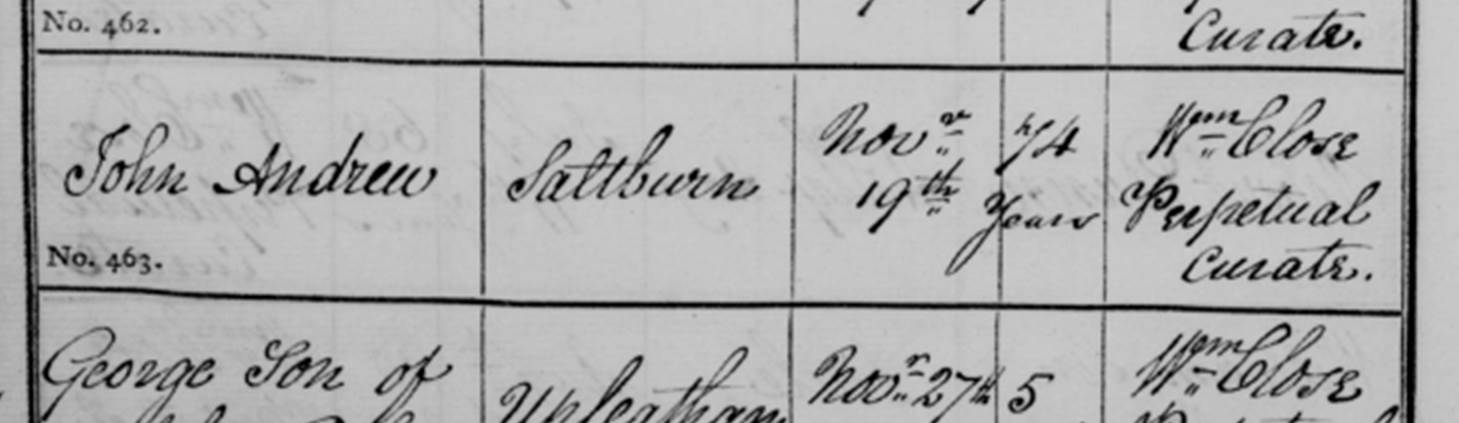 No. 462.
Curate.
John Andrew
Saltburn
Novr 19th
74 Years
Wm Close
Perpetual
Curate.
No. 463.
George Son of
Upleatham
Novr 27th
5
Wm Close